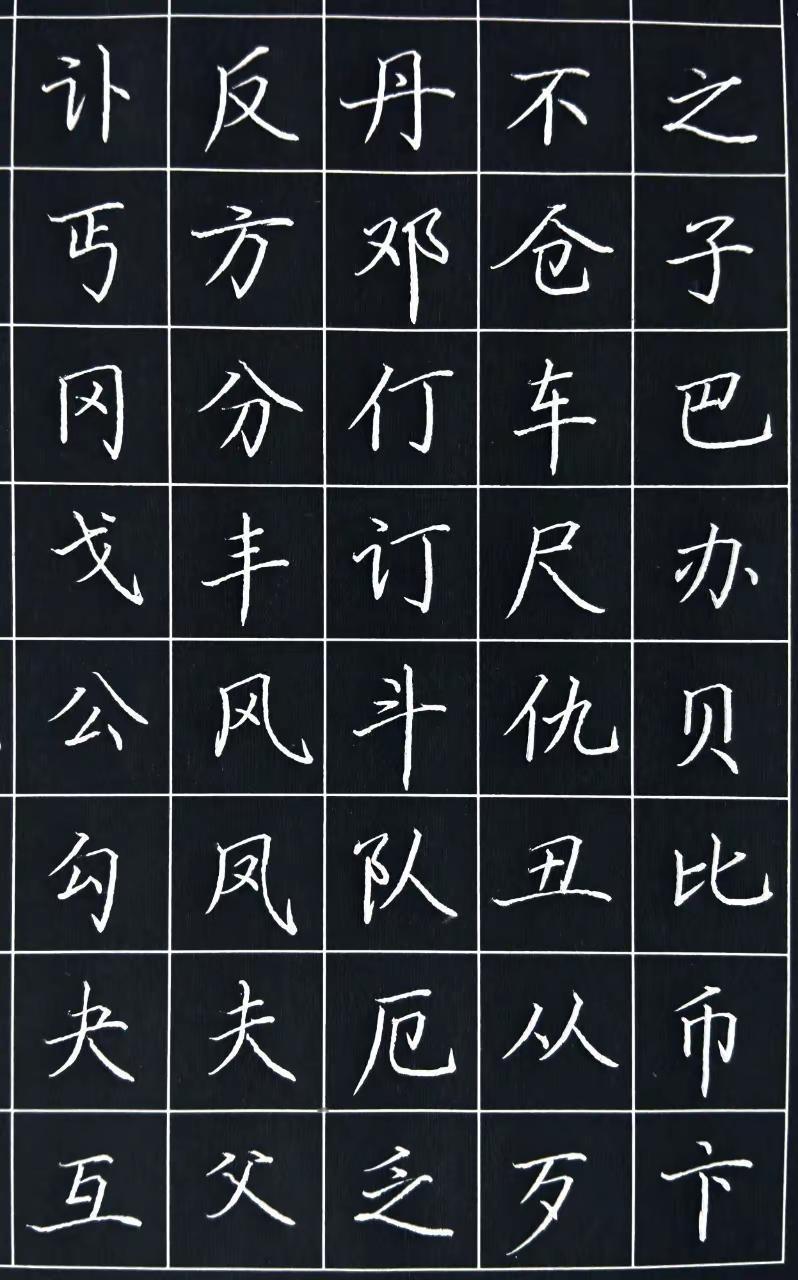 之子巴办贝比币卞
不仓车尺仇丑从歹
丹邓仃订斗队厄乏
反方分丰风凤夫父
讣丐冈戈公勾夬互